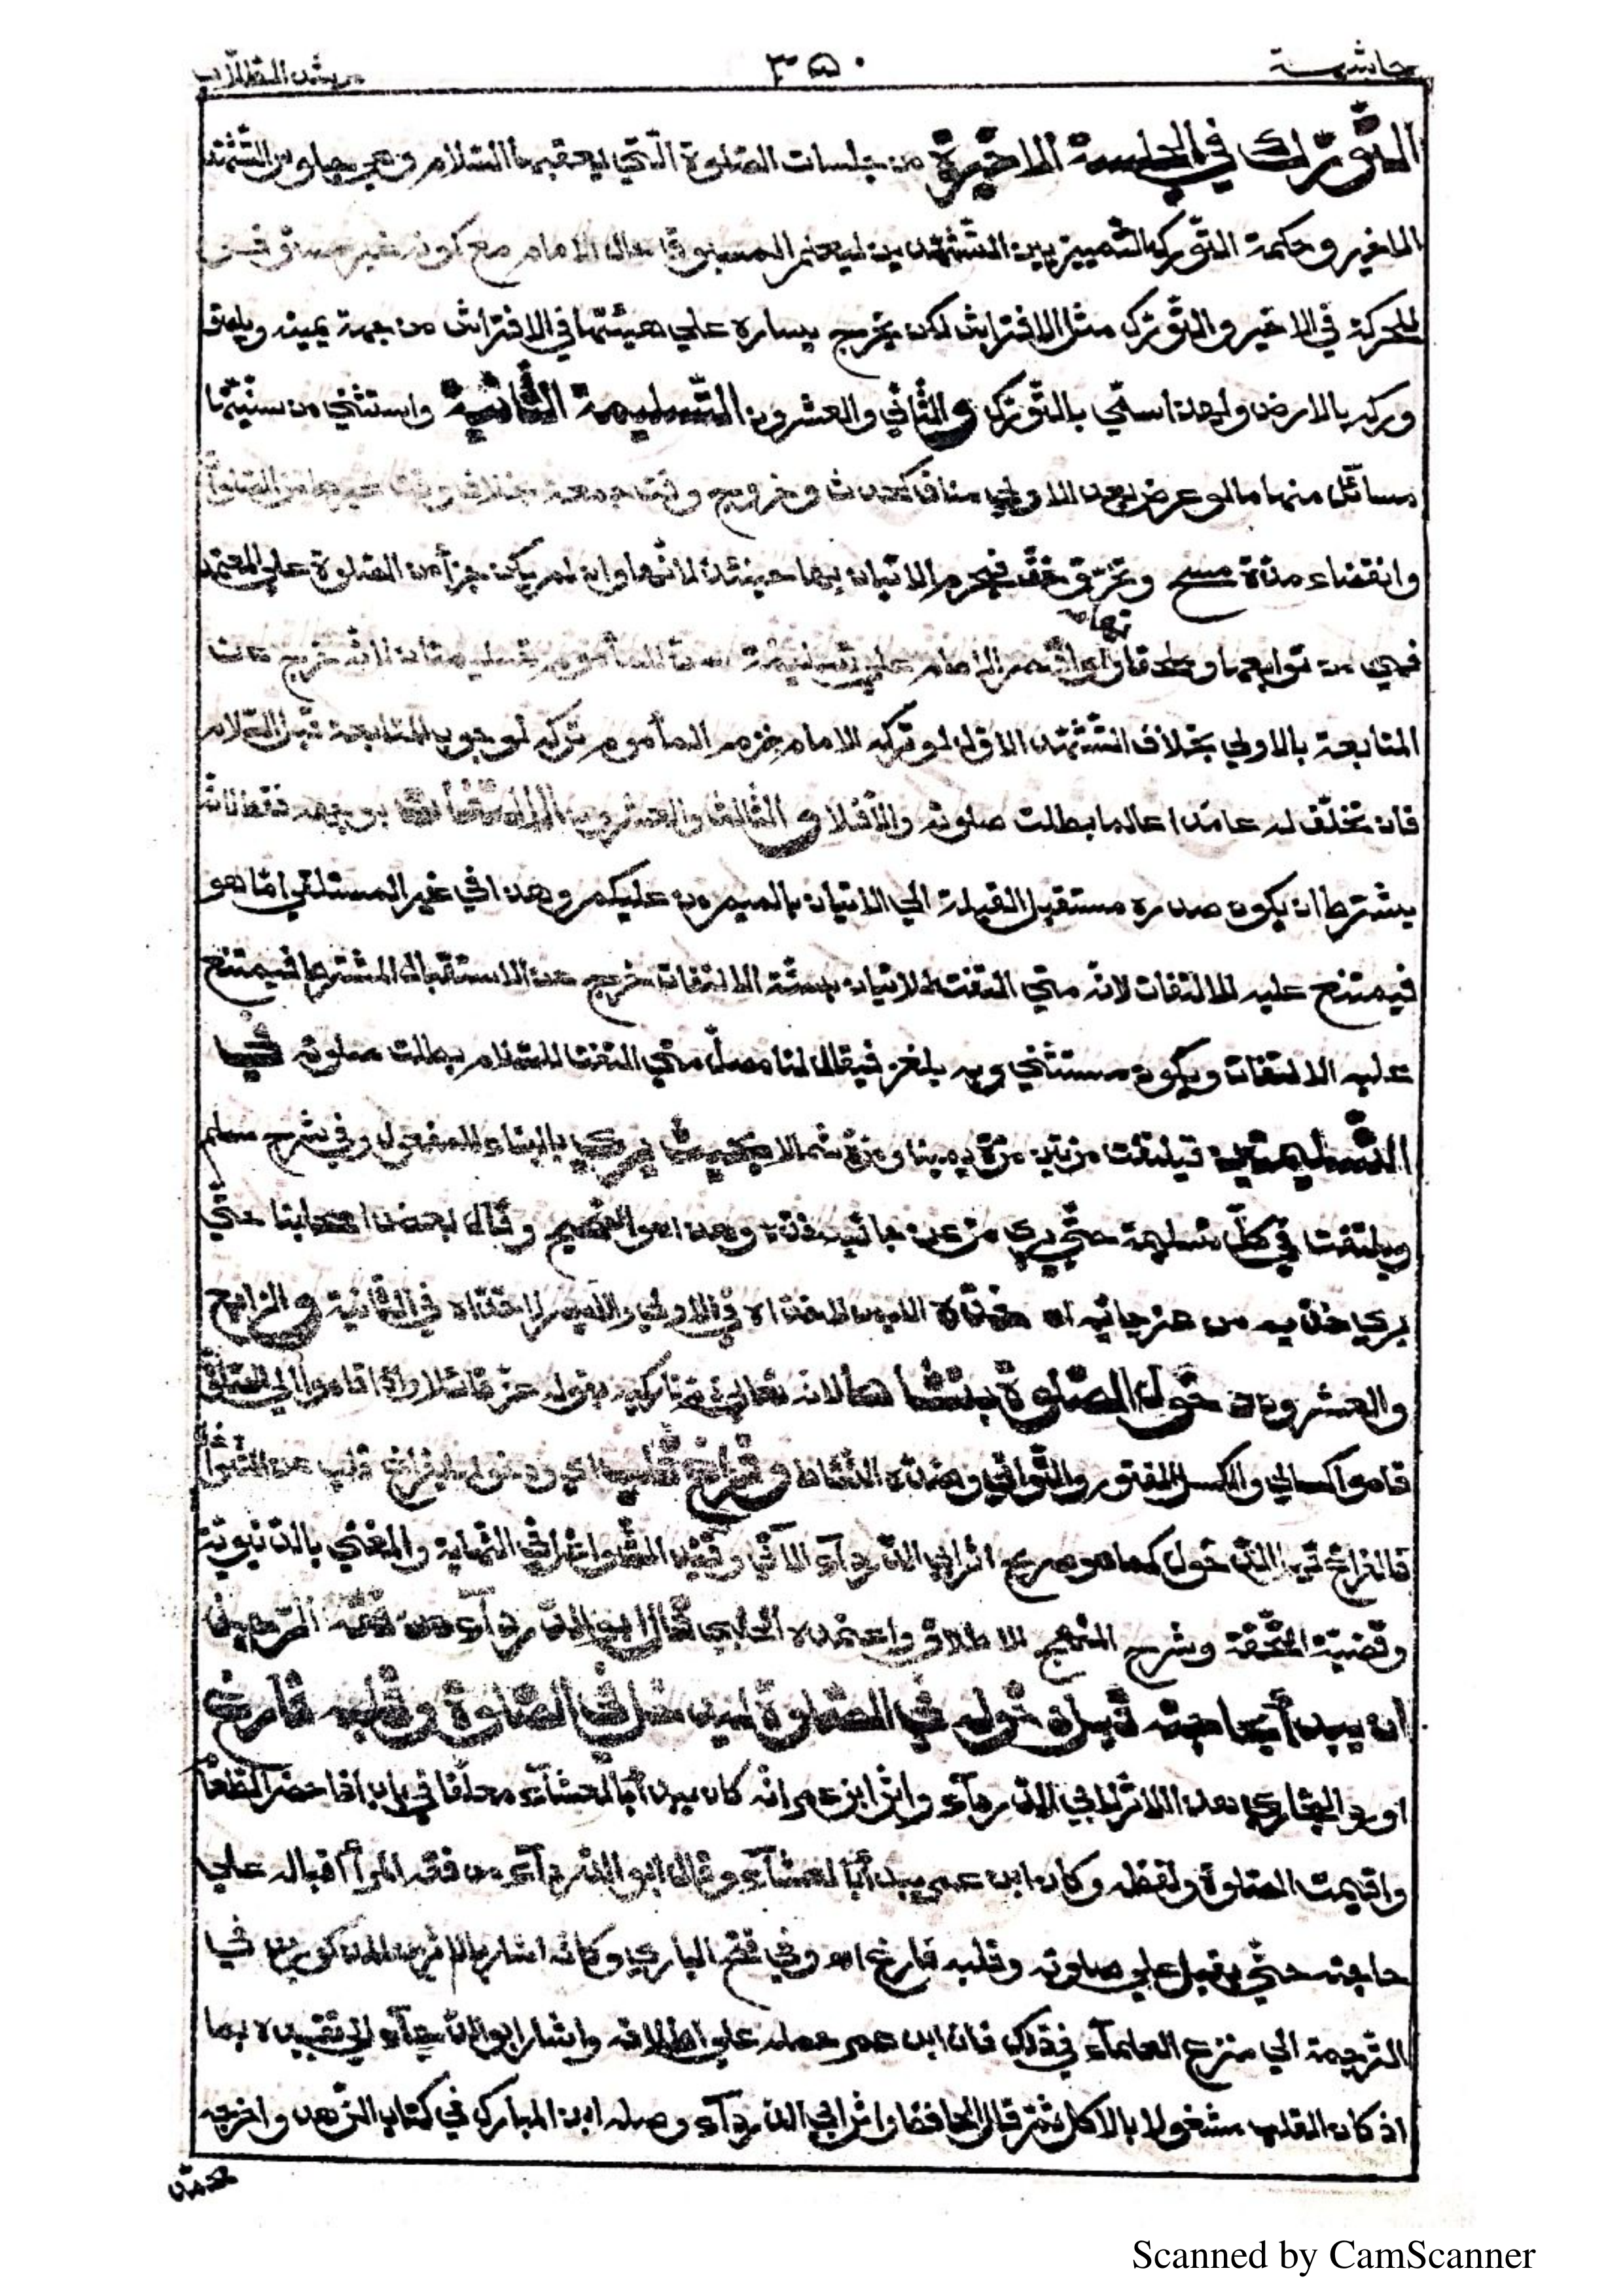 حاشية ٣٥٠ مرشد الطلاب
التّورّك في الجلسة الاخيرة من جلسات الصّلوة الّتي يعقبها السّلام وهي جلوس التّشهّد
الاخير وحكمة التّورّك التّمييز بين التّشهّدين ليعلم المسبوق حال الامام مع كونه غير مستوفز
للحركة في الاخير والتّورّك مثل الافتراش لكن يخرج يساره علي هيئتها في الافتراش من جهة يمينه ويلصق
وركه بالارض ولهذا سمّي بالتّورّك والثّاني والعشرون التّسليمة الثّانية واستثني من سنّيّتها
مسائل منها ما لو عرض بعد الاولي مناف كحدث وخروج وقت جمعة بخلاف وقت غيرها من الصّلوات
وانقضاء مدّة مسح وتخرّق خفّ فيحرم الاتيان بها حينئذ لانّها وان لم يكن جزأ من الصّلوة علي المعتمد
فهي من توابعها وملحقاتها ولو اقتصر الامام علي تسليمة سنّ للمأموم تسليمتان لانّه خرج عن
المتابعة بالاولي بخلاف التّشهّد الاوّل لو تركه الامام لزم المأموم تركه لوجوب المتابعة قبل السّلام
فان تخلّف له عامدا عالما بطلت صلوته والّا فلا والثّالث والعشرون الالتفات بوجهه فقط لانّه
يشترط ان يكون صدره مستقبل القبلة الي الاتيان بالميم من عليكم وهذا في غير المستلقي امّا هو
فيمتنع عليه الالتفات لانّه متي التفت للاتيان بسنّة الالتفات خرج عن الاستقبال المشترط فيمتنع
عليه الالتفات ويكون مستثني وبه يلغز فيقال لنا مصلّ متي التفت للسّلام بطلت صلوته في
التّسليمتين فيلتفت مرّتين مرّة يمينا ومرّة شمالا بحيث يري بالبناء للمفعول وفي شرح مسلم
ويلتفت في كلّ تسليمة حتّي يري من عن جانبه خدّه وهذا هو الصّحيح وقال بعض اصحابنا حتّي
يري خدّيه من عن جانبه اه خدّه الايمن في الاولي والايسر في الثّانية والرّابع
والعشرون دخول الصّلوة بنشاط لانه تعالي ذمّ تاركيه بقوله عزّ قائلا واذا قاموا الي الصّلوة
قاموا كسالي والكسل الفتور والتّواني وضدّه النّشاط وفراغ قلب اي ودخوله بفراغ قلب عن الشّواغل
فالفراغ قبل الدّخول كما هو صريح اثر ابي الدّرداء الآتي وقيّد الشّواغل في النّهاية والمغني بالدّنيويّة
وقضيّة التّحفة وشرح المنهج الاطلاق واعتمده الحلبي قال ابو الدّرداء من فقه الرّجل
ان يبدأ بحاجته قبل دخوله في الصّلوة ليدخل في الصّلوة وقلبه فارغ
اورد البخاري هذا الاثر لابي الدّرداء واثر ابن عمر انّه كان يبدأ بالعشاء معلّقا في باب اذا حضر الطّعام
واقيمت الصّلوة ولفظه وكان ابن عمر يبدأ بالعشاء وقال ابو الدّرداء من فقه المرأ اقباله علي
حاجته حتّي يقبل علي صلوته وقلبه فارغ اه وفي فتح الباري وكانه اشار بالاثرين المذكورين في
التّرجمة الي منزع العلماء في ذلك فان ابن عمر حمله علي اطلاقه واشار ابو الدّرداء الي تقييده بما
اذ كان القلب مشغولا بالاكل ثمّ قال الحافظ واثر ابي الدّرداء وصله ابن المبارك في كتاب الزّهد واخرجه
محمد
Scanned by CamScanner